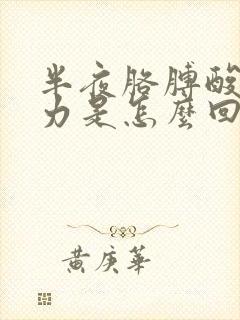 半夜胳膊酸
力是怎麼回
黃庚華